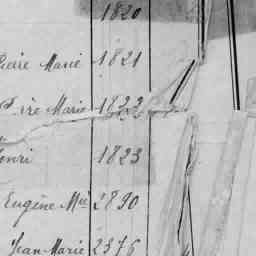 1820
Pierre Marie 1821
Marie 1822
Henri 1823
Eugène Mie 2890
Jean-Marie 2376